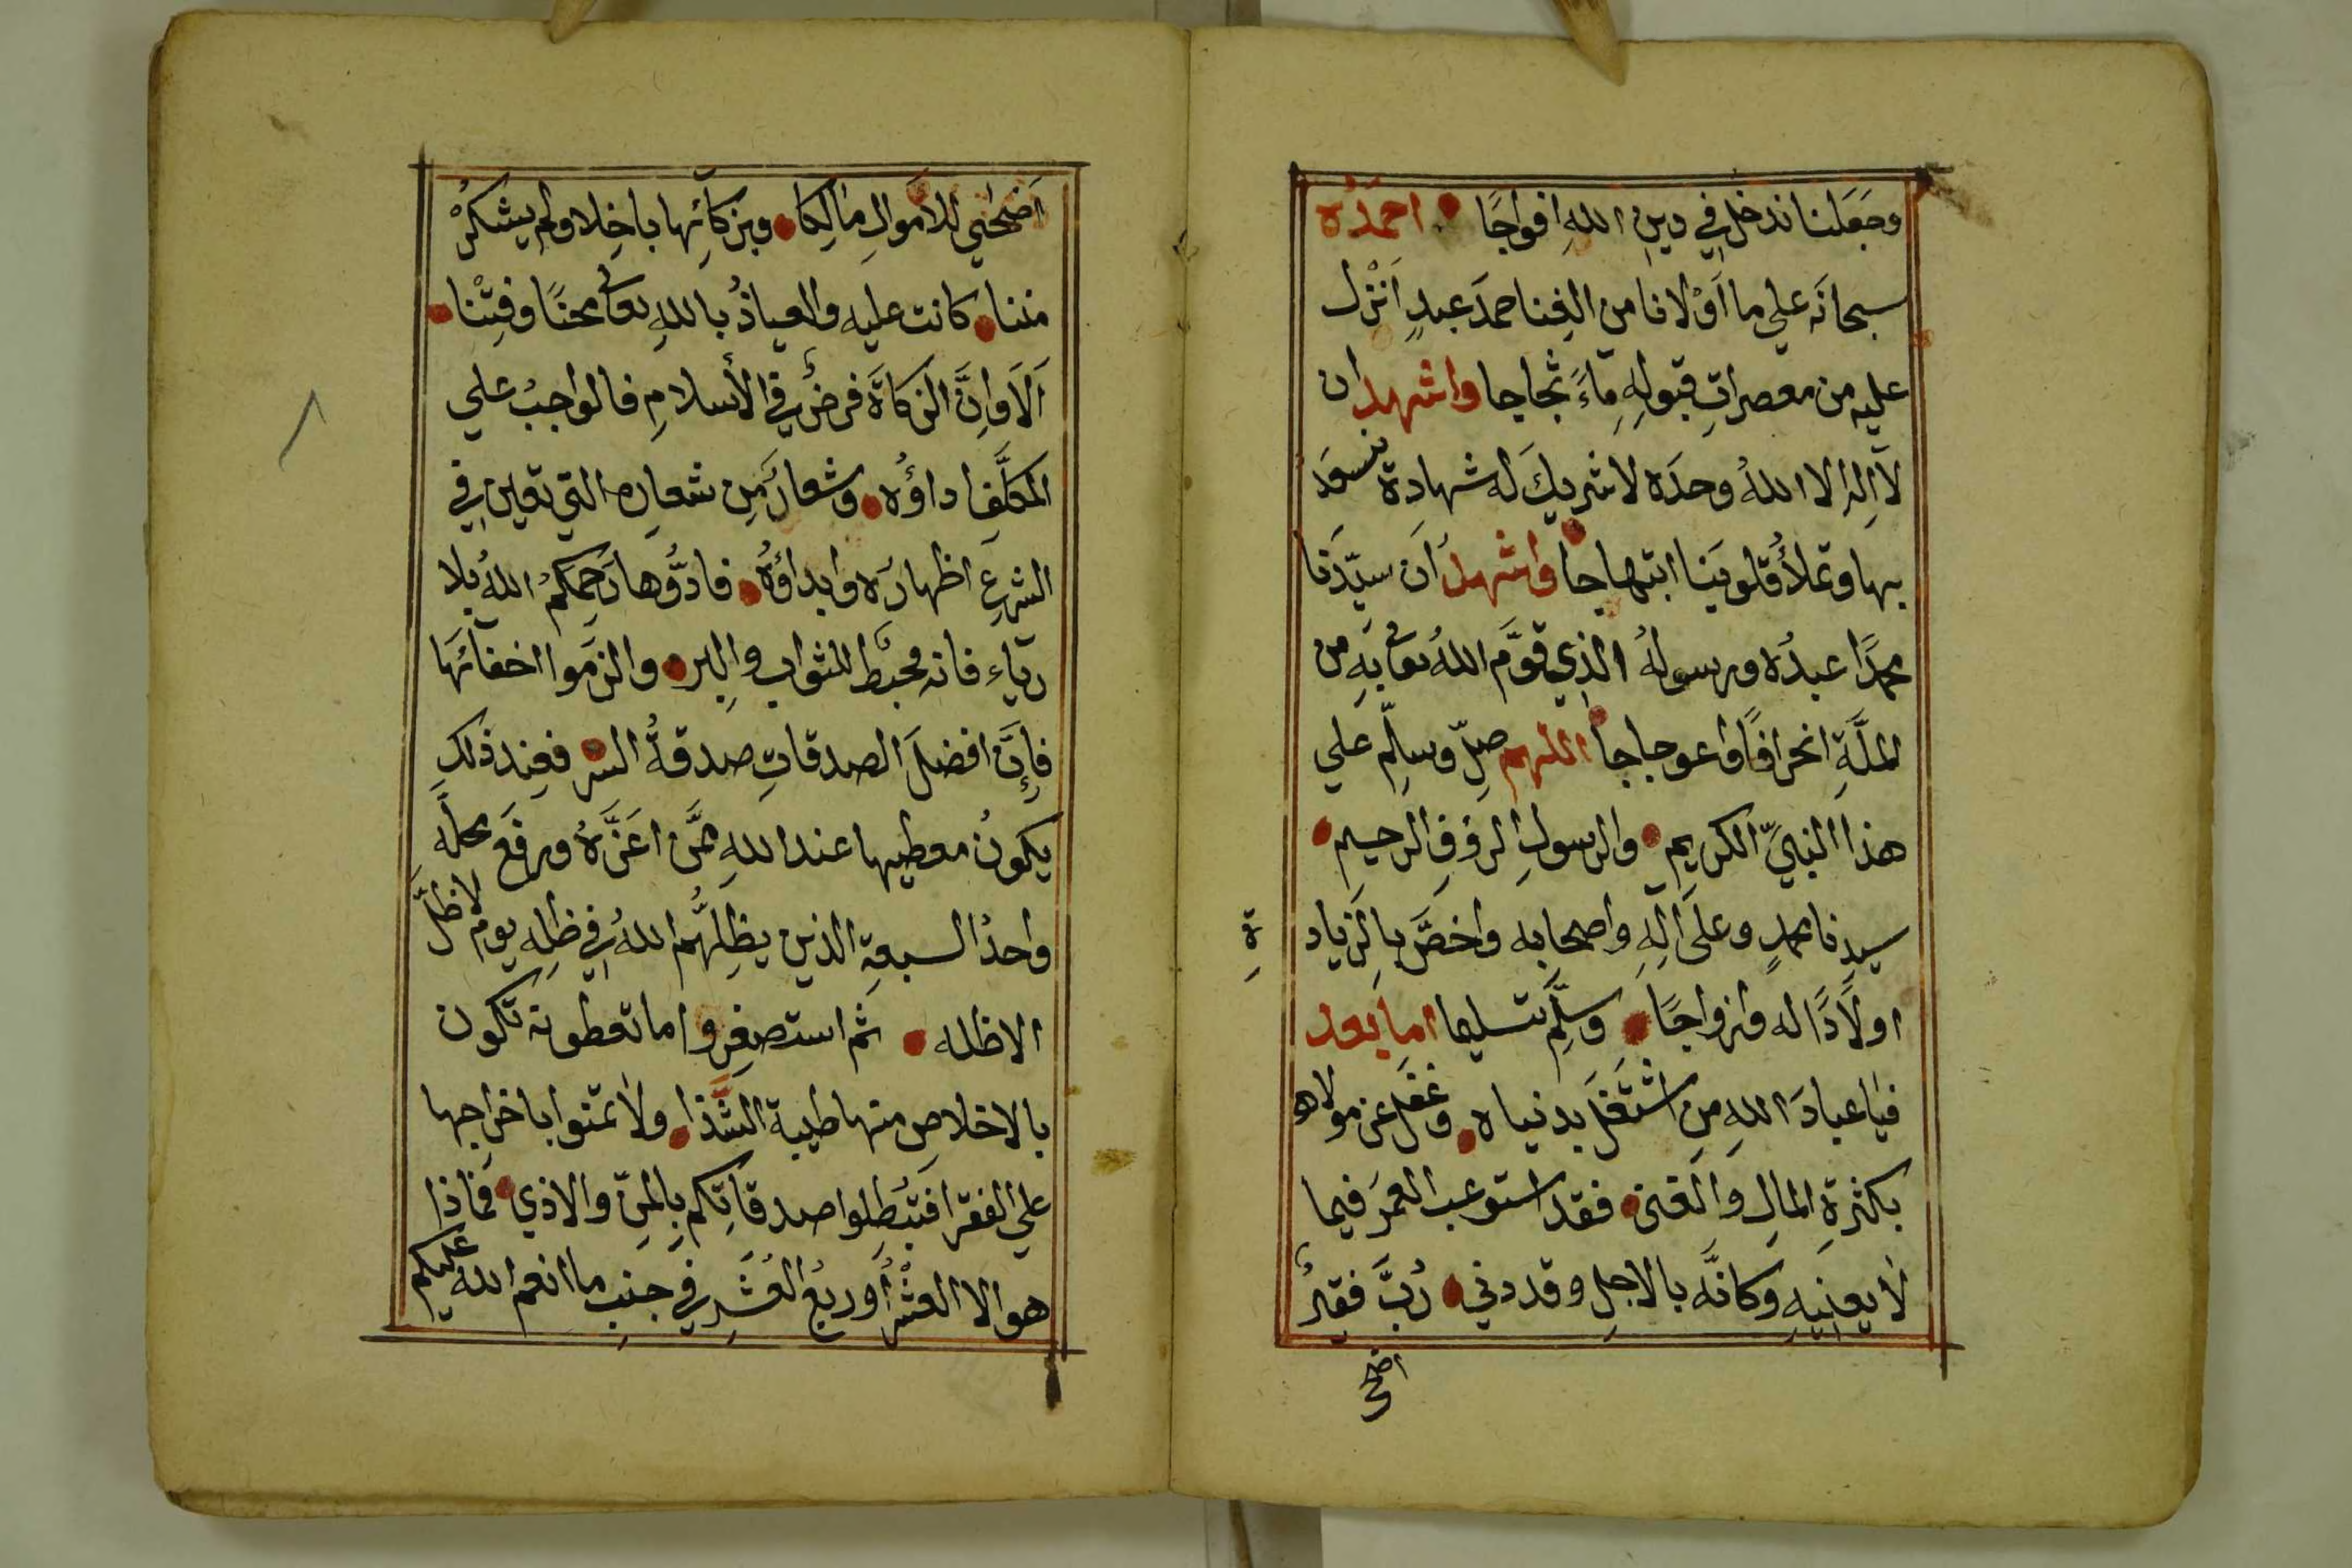 وجَعَلنا ندخل في دينِ اللهِ افواجًا • احمَدُه
سبحانَه علي ما اَوْلانا من الغِنا حمدَ عبدٍ اَنْزل
عليه من معصراتِ قبولِهِ مِاءً ثجاجا واشهد ان
لآ اِلٰه الا اللهُ وحدَه لا شريكَ له شهادة نسعَد
بها وتملأُ قلوبَنا ابتهاجا • واشهدُ اَن سيّدَنا
محمدًا عبدُه ورسولهُ الذِي قوَّم اللهُ تعا بِهِ من
الملَّةِ انحرافًا واعوجاجا • اللهم صلّ وسلّم علي
هذا النبيّ الكريم • والرسولِ الرؤفِ الرحيم •
سيدِنا محمدٍ وعلَى آلِهِ واصحابه واخصَّ بالزياد
ةِ
اولَادًا له وازواجًا • وسلِّم تسليما اما بعد
فيا عبادَ اللهِ مِن اشْتَغَل بدنياه • وغفَل عن مولاه
بكثرةِ المالِ والغنى • فقد استوعب العمرَ فيما
لَا يعنيهِ وكانَّه بالاجلِ وقد دني • رُبَّ فقيرٌ
اضحى
اَضحٰي للاَموالِ مَالِكا • وبزكاتِها باخِلا ولم يشكرْ
مننا • كانت عليه والعياذُ باللهِ تعا محنًا وفِتْنا •
اَلَا واِنَّ الزكاةَ فرضٌ في الأسلامِ فالواجبُ علي
المكلَّفِ اداؤُه • وشعارٌ مِن شعارِه التي تعين في
الشرعِ اظهارَه وابداؤُهُ • فادُّوها رَحِمكمُ اللهُ بلا
رياءٍ فانه محبِطٌ للثوابِ والبِر • والزَموا اخفائَها
فاِنَّ افضلَ الصدقاتِ صدقةُ السر • فعِند ذلك
يكونُ معطيها عند اللهِ مِمَّن اعَزَّهُ ورفَع محلَّه
واحدُ السبعةِ الذين يظِلُّهم اللهُ في ظلِه يوم لا ظلَّ
الا ظله • ثم استصغِروا ما تعطونه تكون
بالاخلاصِ منها طيبة الشَّذا • ولَا تمنوا باخراجها
علي الفقرا فتُبطِلوا صدقاتِكم بِالمنِّ والاذي • فماذا
هو الا العشْرُ اَو ربعُ العُشَرِ في جنبِ ما انعم الله عليكم